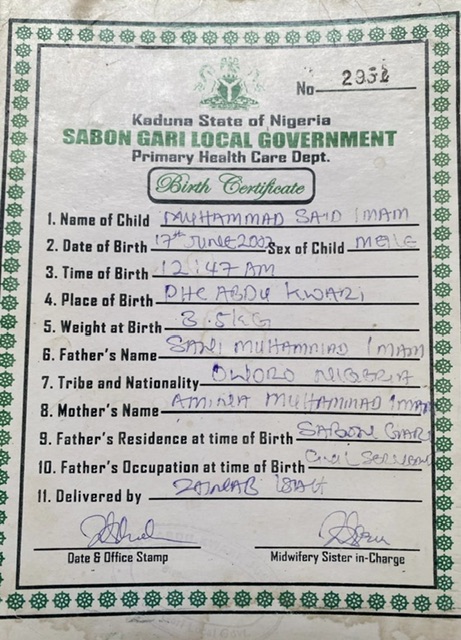 No 2932
Kaduna State of Nigeria
SABON GARI LOCAL GOVERNMENT
Primary Health Care Dept.
Birth Certificate
1. Name of Child MUHAMMAD SAID IMAM
2. Date of Birth 17th JUNE 2002 Sex of Child MELE
3. Time of Birth 12:47 AM
4. Place of Birth PHC ABDU KWARI
5. Weight at Birth 3.5KG
6. Father's Name SANI MUHAMMAD IMAM
7. Tribe and Nationality OWORO NIGERIA
8. Mother's Name AMINA MUHAMMAD IMAM
9. Father's Residence at time of Birth SABON GARI
10. Father's Occupation at time of Birth Civil Servant
11. Delivered by ZAINAB
Date & Office Stamp Midwifery Sister in-Charge